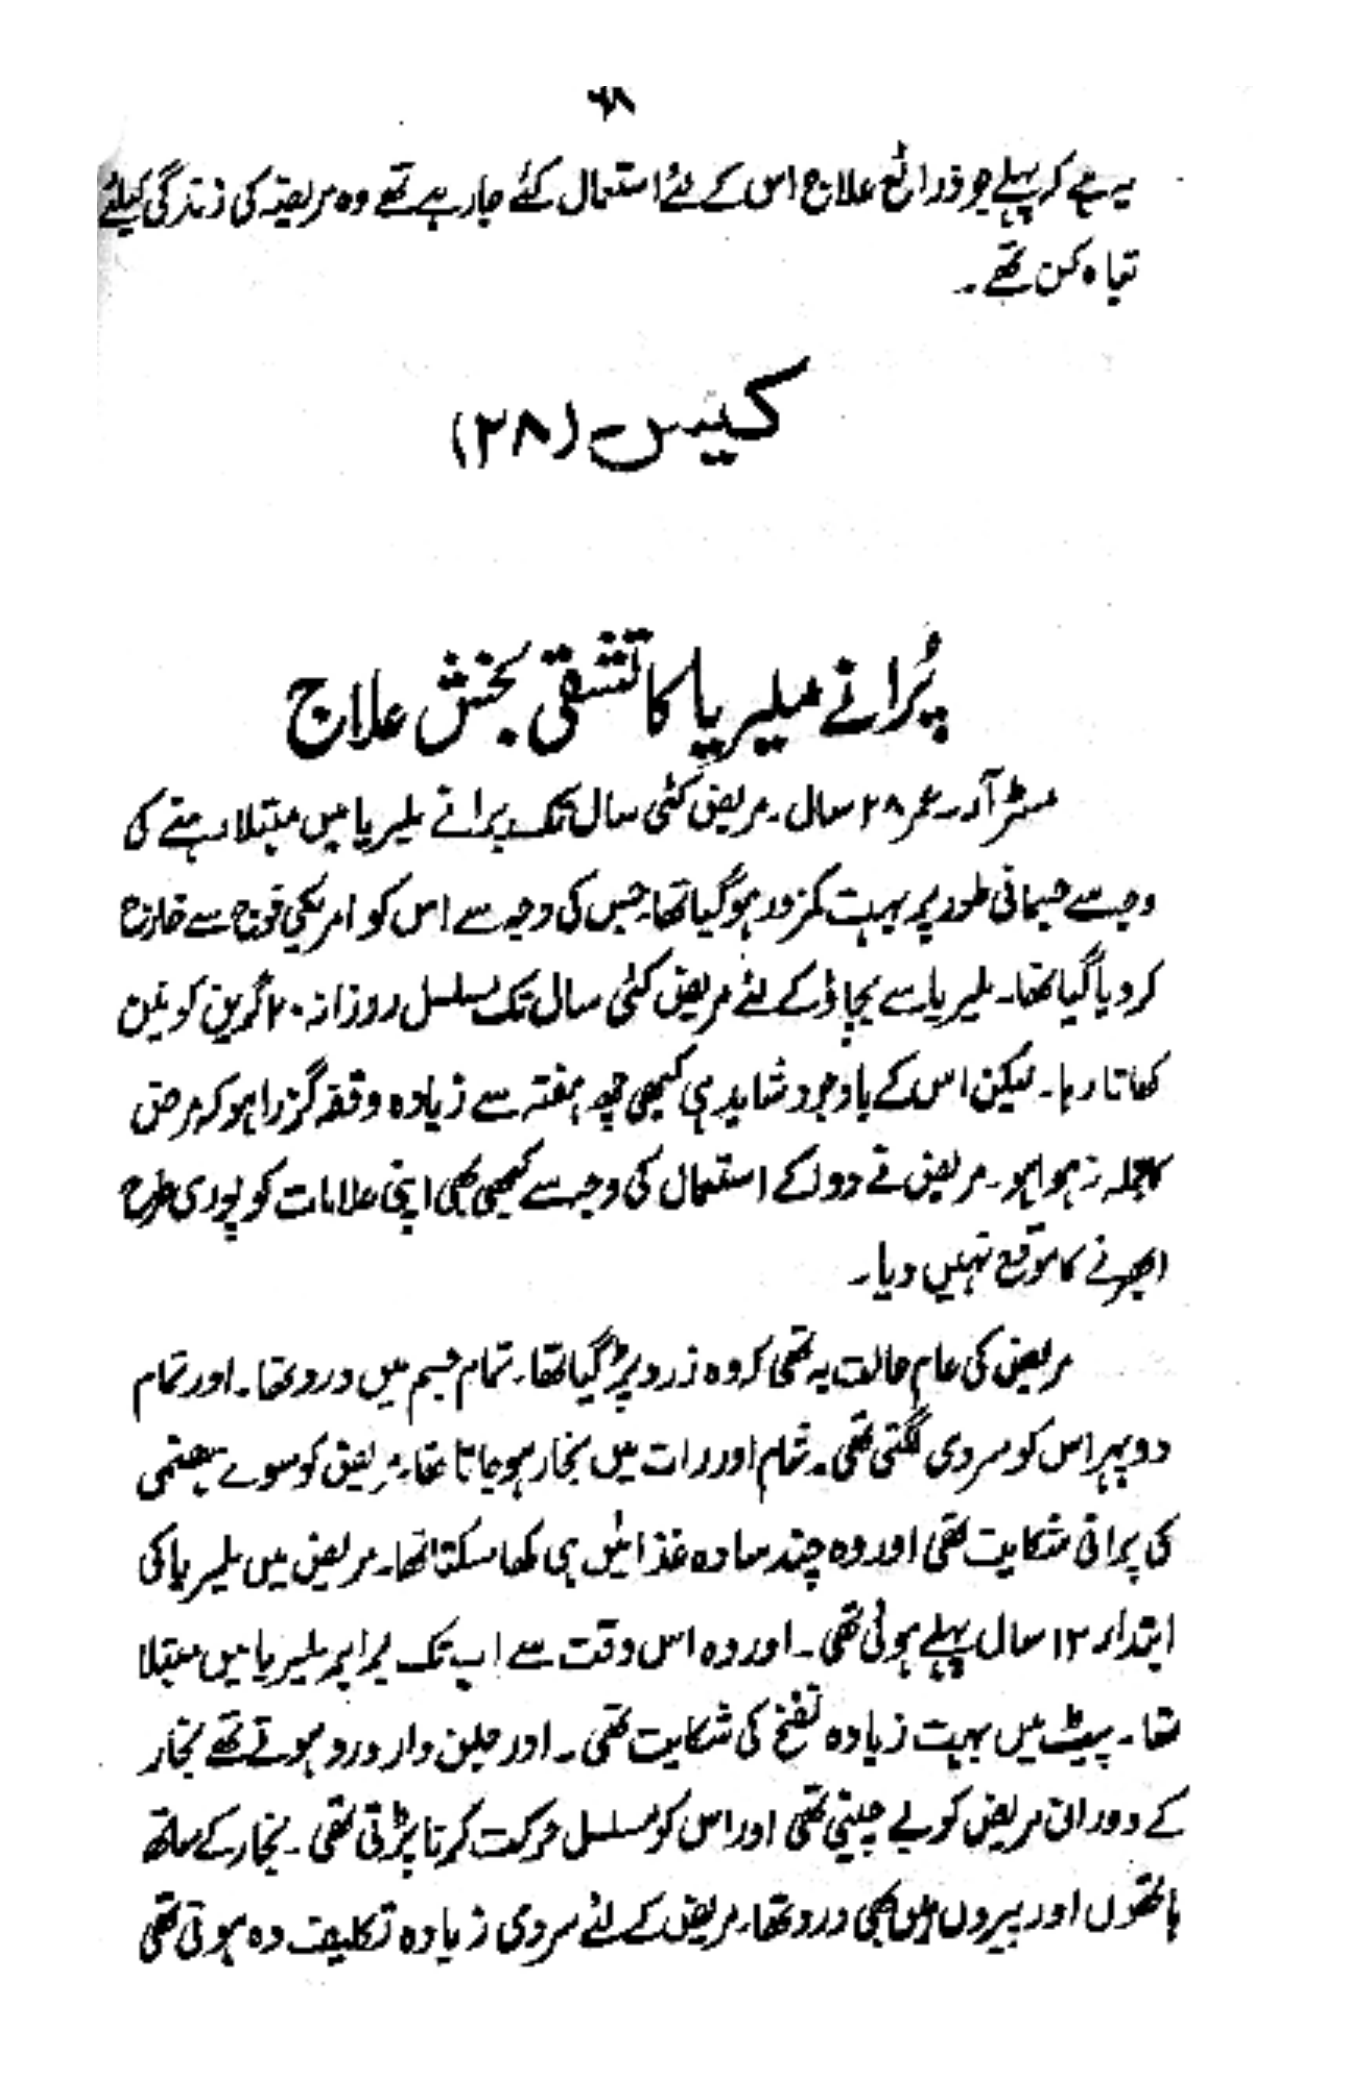 ۶۸
یہ ہے کہ پہلے جو ذرائع علاج اس کے لئے استعمال کئے جا رہے تھے وہ مریضہ کی زندگی کیلئے
تباہ کن تھے۔
کیس (۲۸)
پُرانے میلیریا کا تشفی بخش علاج
مسٹر آر۔ عمر ۲۸ سال۔ مریض کئی سال تک پرانے ملیریا میں مبتلا رہنے کی
وجہ سے جسمانی طور پر بہت کمزور ہو گیا تھا۔ جس کی وجہ سے اس کو امریکی فوج سے خارج
کر دیا گیا تھا۔ ملیریا سے بچاؤ کے لئے مریض کئی سال تک مسلسل روزانہ ۲۰ گرین کونین
کھاتا رہا۔ لیکن اس کے باوجود شاید ہی کبھی چھ ہفتہ سے زیادہ وقفہ گزرا ہو کہ مرض
کا حملہ نہ ہوا ہو۔ مریض نے دوا کے استعمال کی وجہ سے کبھی بھی اپنی علامات کو پوری طرح
ابھرنے کا موقع نہیں دیا۔
مریض کی عام حالت یہ تھی کہ وہ زرد پڑ گیا تھا۔ تمام جسم میں درد تھا۔ اور تمام
دوپہر اس کو سردی لگتی تھی۔ شام اور رات میں بخار ہو جاتا تھا۔ مریض کو سوء ہضمی
کی پرانی شکایت تھی اور وہ چند سادہ غذائیں ہی کھا سکتا تھا۔ مریض میں ملیریا کی
ابتداء ۱۲ سال پہلے ہوئی تھی۔ اور وہ اس وقت سے اب تک برابر ملیریا میں مبتلا
تھا۔ پیٹ میں بہت زیادہ نفخ کی شکایت تھی۔ اور جلن دار درد ہوتے تھے بخار
کے دوران مریض کو بے چینی تھی اور اس کو مسلسل حرکت کرنا پڑتی تھی۔ بخار کے ساتھ
ہاتھوں اور پیروں میں بھی درد تھا۔ مریض کے لئے سردی زیادہ تکلیف دہ ہوتی تھی